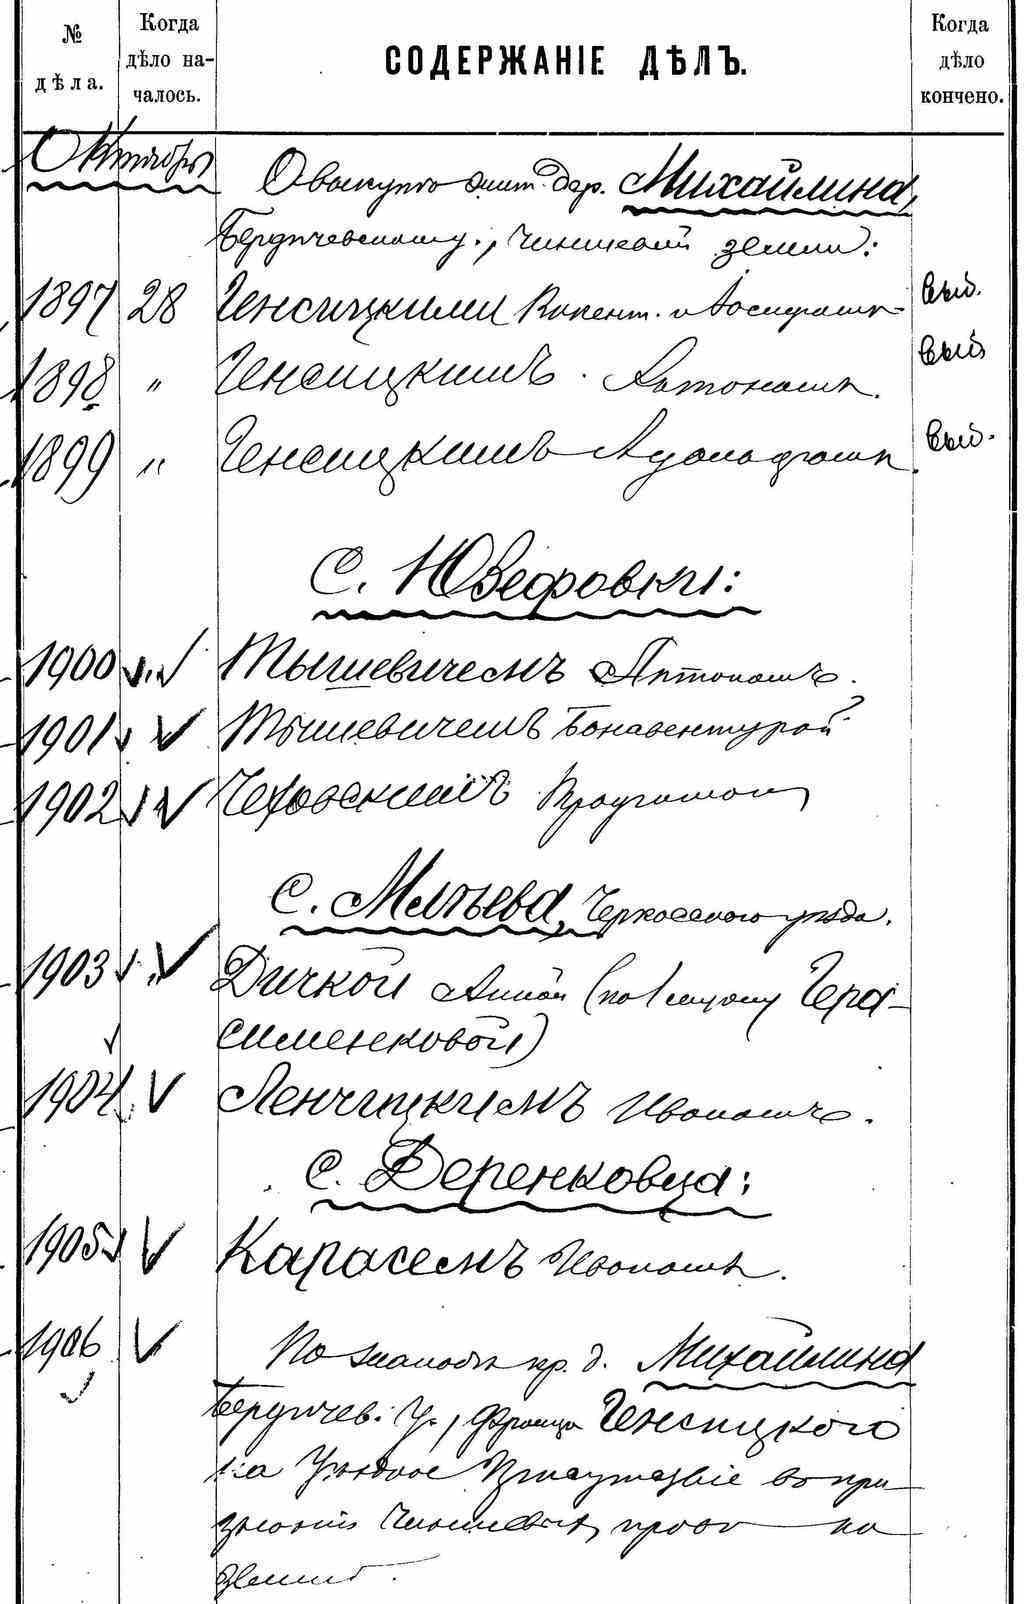 № дѣла.
Когда дѣло на-чалось.
СОДЕРЖАНІЕ ДѢЛЪ.
Когда дѣло кончено.
Октябрь
О выкупѣ жит. дер. Михайлина,
Бердичевскому., чиншевой земли:
1897 28 Генсицкими Викент. и Іосифомъ выд.
1898 " Генсицкимъ. Антономъ. выд
1899 " Генсицкимъ Адольфомъ. выд.
С. Юзефовки:
1900 " Тышевичемъ Антономъ.
1901 " Тышевичемъ Бонавентурой
1902 " Чеховскимъ
С. Млѣева, Черкасскаго уѣзда.
1903 " Дичкой Анной (по мужу Гера-
сименковой)
1904 Ленчицкимъ Иваномъ.
С. Деренковца:
1905 Карасемъ Иваномъ.
1906 По жалобѣ кр. д. Михайлина
Бердичев. у., Франца Генсицкого
на Уѣздное Присутствіе в при
чиншевыхъ правъ на
землю.